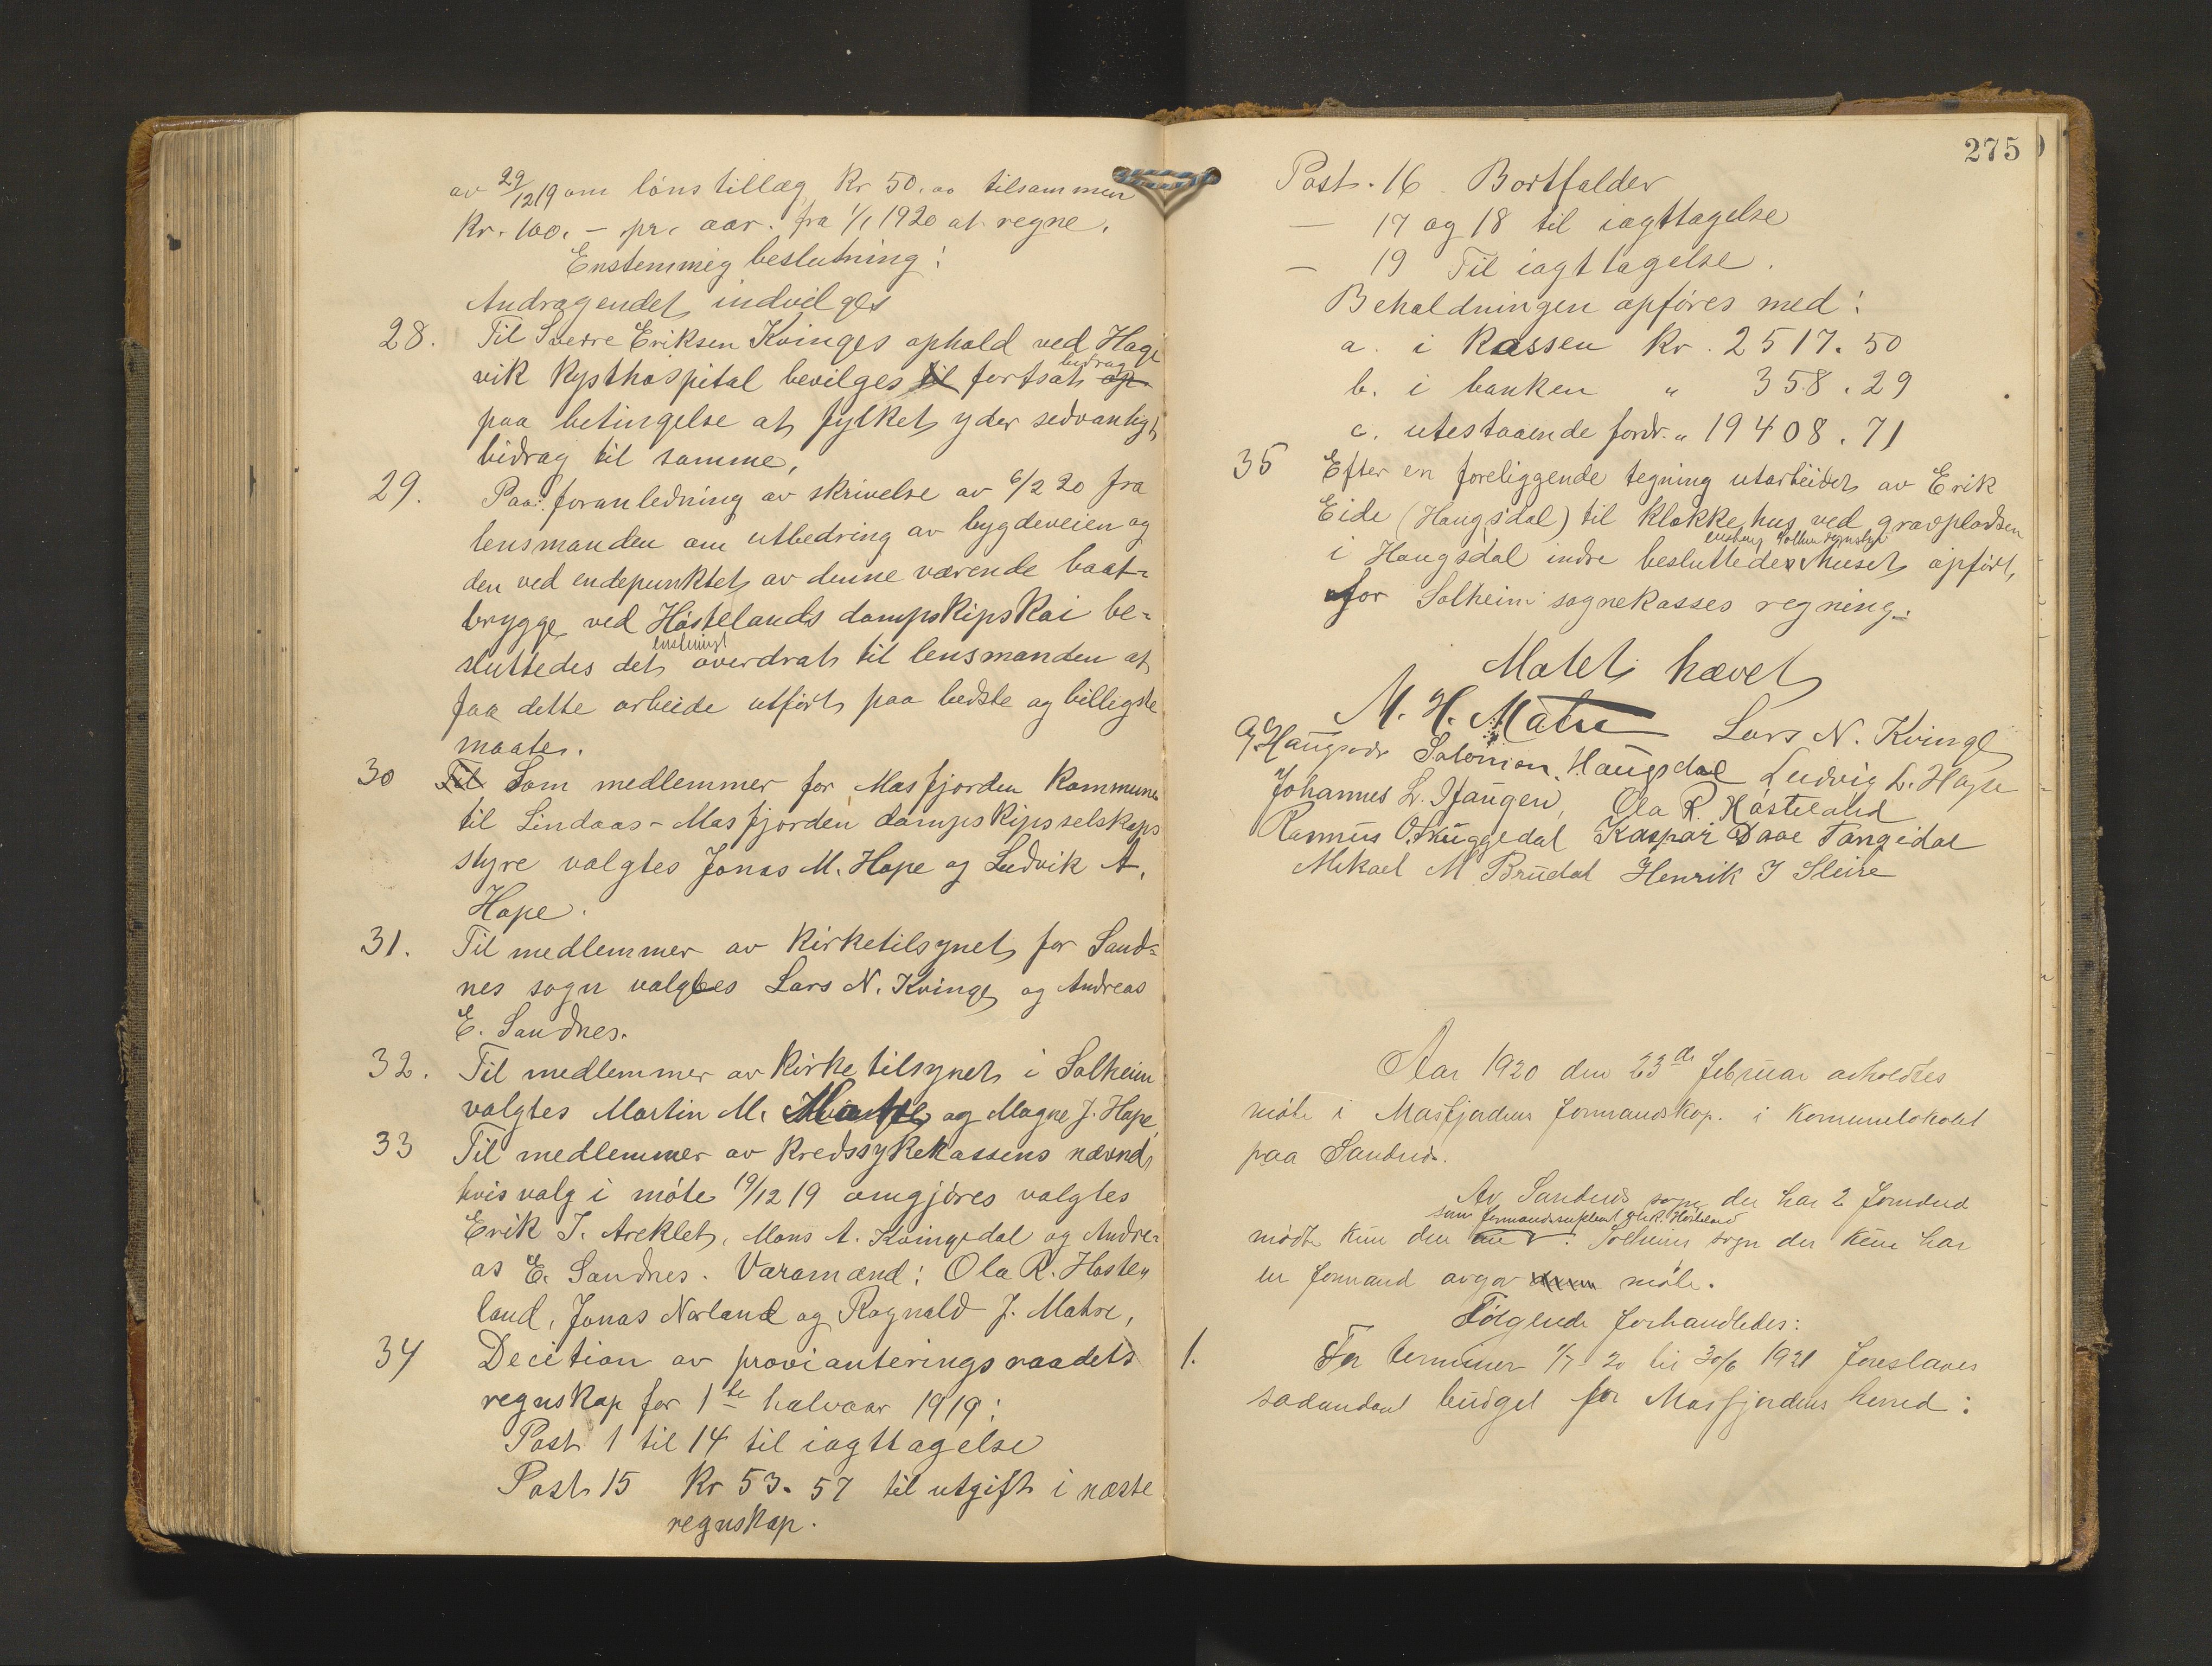 av 29/12 19 om lønstillæg Kr 50.00 tilsammen
Kr. 100.- pr. aar. fra 1/1 1920 at regne.
Enstemmig beslutning:
Andragendet indvilges
28. Til Sverre Eriksen Kvinges ophold ved Hage
vik Kysthospital bevilges til fortsat bidrag op
paa betingelse at fylket yder sedvanligt
bidrag til samme.
29. Paa foranledning av skrivelse av 6/2 20 fra
lensmanden om utbedring av bygdeveien og
den ved endepunktet av denne værende baat-
brygge ved Høstelands dampskipskai be-
sluttedes det enstemigt overdrat til lensmanden at
faa dette arbeide utført paa bedste og billigste
maate.
30 Til Som medlemmer for Masfjorden Kommune
til Lindaas-Masfjorden dampskipsselskaps
styre valgtes Jonas M. Hope og Ludvik A.
Hope.
31. Til medlemmer av Kirketilsynet for Sand-
nes sogn valgtes Lars N. Kvinge og Andreas
E. Sandnes.
32. Til medlemmer av Kirketilsynet i Solheim
valgtes Martin M. Matre og Magne J. Hope
33 Til medlemmer av Kredssykekassens nævnd
hvis valg i møte 19/12 19 omgjøres valgtes
Erik I. Areklet, Mons A. Kvingedal og Andre-
as E. Sandnes. Varamænd: Ola R. Høste-
land, Jonas Nørland og Ragnald J. Matre.
34 Decition av provianteringsraadets
regnskap for 1te halvaar 1919:
Post 1 til 14 til iagttagelse
Post 15 Kr 53.57 til utgift i næste
regnskap.
275
Post. 16 Bortfalder
— 17 og 18 til iagttagelse
— 19 Til iagttagelse.
Beholdningen opføres med:
a. i Kassen Kr. 2517.50
b. i banken " 358.29
c. utestaaende fordr. " 19408.71
35 Efter en foreliggende tegning utarbeidet av Erik
Eide (Haugsdal) til Klokkehus ved gravpladsen
i Haugsdal indre besluttedes huset opført
for Solheim sognekasses regning.
Møtet hævet
M. H. Matre Lars N. Kvinge
Haugsdal Salomon Haugsdal Ludvig L. Hope
Johannes L. Haugen, Ola R. Høsteland
Rasmus O. Skuggedal Kaspar Daae Tangedal
Mikael M Brudal Henrik I Sleire
Aar 1920 den 23de februar avholdtes
møte i Masfjordens formandskap. i Kommunelokalet
paa Sandnes.
Av Sandnes sogn der har 2 formænd
som formandssuplent Ola R. Høsteland
mødte kun den ene. Solheim sogn der kun har
en formand avgav møte.
Følgende forhandledes:
1. For terminen 1/7 20 til 30/6 1921 foreslaaes
saadandant budget for Masfjordens herred: